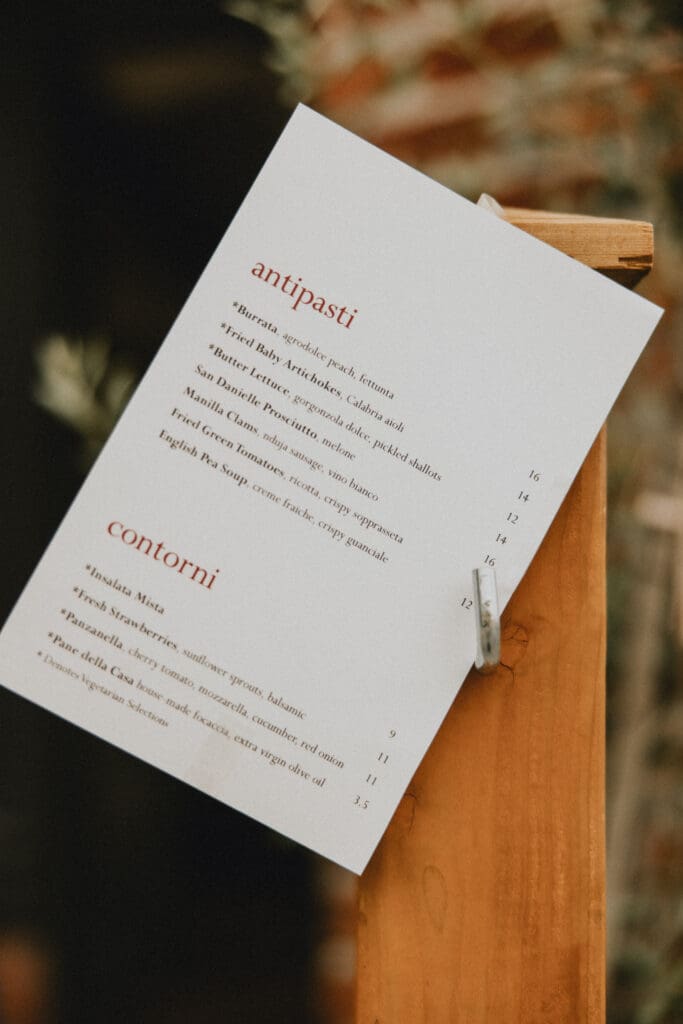 antipasti
*Burrata, agrodolce peach, fettunta 16
*Fried Baby Artichokes, Calabria aioli 14
*Butter Lettuce, gorgonzola dolce, pickled shallots 12
San Danielle Prosciutto, melone 14
Manilla Clams, nduja sausage, vino bianco 16
Fried Green Tomatoes, ricotta, crispy sopprasseta
English Pea Soup, creme fraiche, crispy guanciale 12
contorni
*Insalata Mista 9
*Fresh Strawberries, sunflower sprouts, balsamic 11
*Panzanella, cherry tomato, mozzarella, cucumber, red onion 11
*Pane della Casa house-made focaccia, extra virgin olive oil 3.5
*Denotes Vegetarian Selections